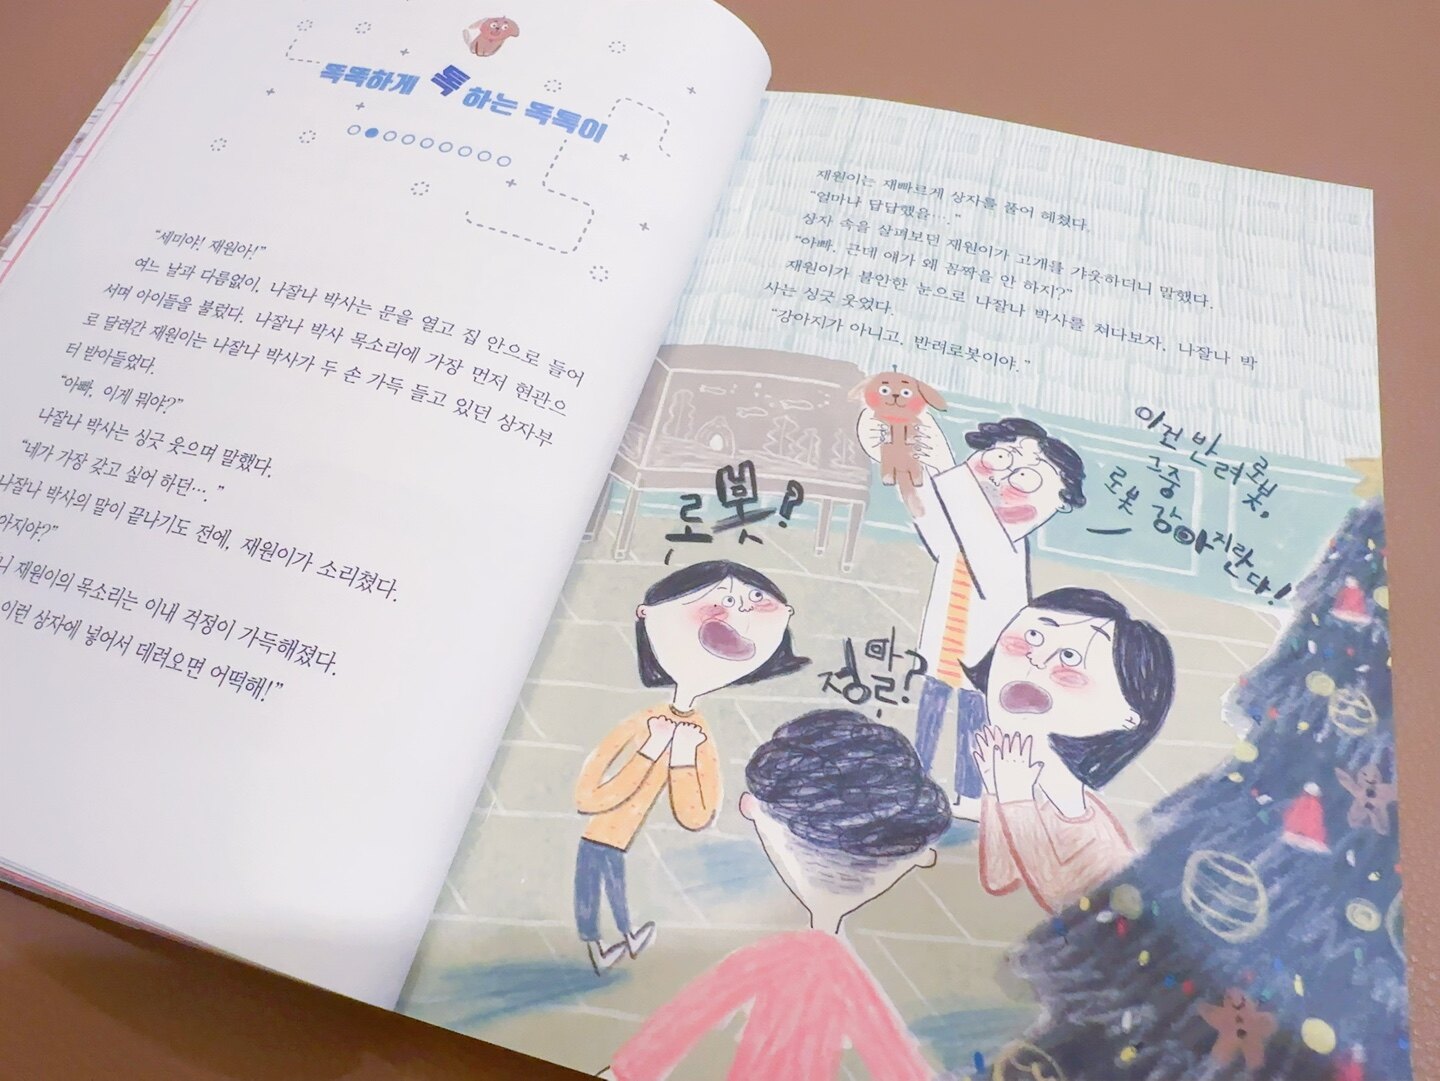 똑똑하게 톡 하는 똑똑이
"세미야! 재원아!"
여느 날과 다름없이, 나잘나 박사는 문을 열고 집 안으로 들어
서며 아이들을 불렀다. 나잘나 박사 목소리에 가장 먼저 현관으
로 달려간 재원이는 나잘나 박사가 두 손 가득 들고 있던 상자부
터 받아들었다.
"아빠, 이게 뭐야?"
나잘나 박사는 싱긋 웃으며 말했다.
"네가 가장 갖고 싶어 하던…."
나잘나 박사의 말이 끝나기도 전에, 재원이가 소리쳤다.
아지야?"
니 재원이의 목소리는 이내 걱정이 가득해졌다.
이런 상자에 넣어서 데려오면 어떡해!"
재원이는 재빠르게 상자를 풀어 헤쳤다.
"얼마나 답답했을…."
상자 속을 살펴보던 재원이가 고개를 갸웃하더니 말했다.
"아빠, 근데 얘가 왜 꼼짝을 안 하지?"
재원이가 불안한 눈으로 나잘나 박사를 쳐다보자, 나잘나 박
사는 싱긋 웃었다.
"강아지가 아니고, 반려로봇이야."
이건 반려로봇,
그중
로봇 강아지란다!
로봇?
정말?